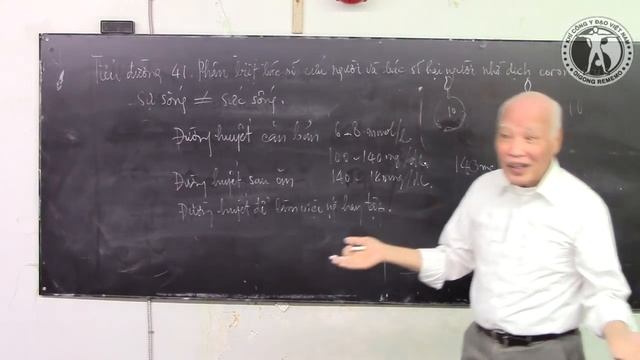 Tiểu đường 41. Phân biệt bác sĩ cứu người và bác sĩ hại người nhờ dịch coron
sự sống ≠ sức sống.
Đường huyết căn bản 6-8 mmol/L
100-140 mg/dL
Đường huyết sau ăn 140-180 mg/dL
Đường huyết để làm việc
10
143 mg
10
KHÍ CÔNG Y ĐẠO VIỆT NAM